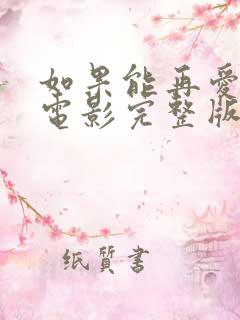 如果能再愛
電影完整版
纸質書